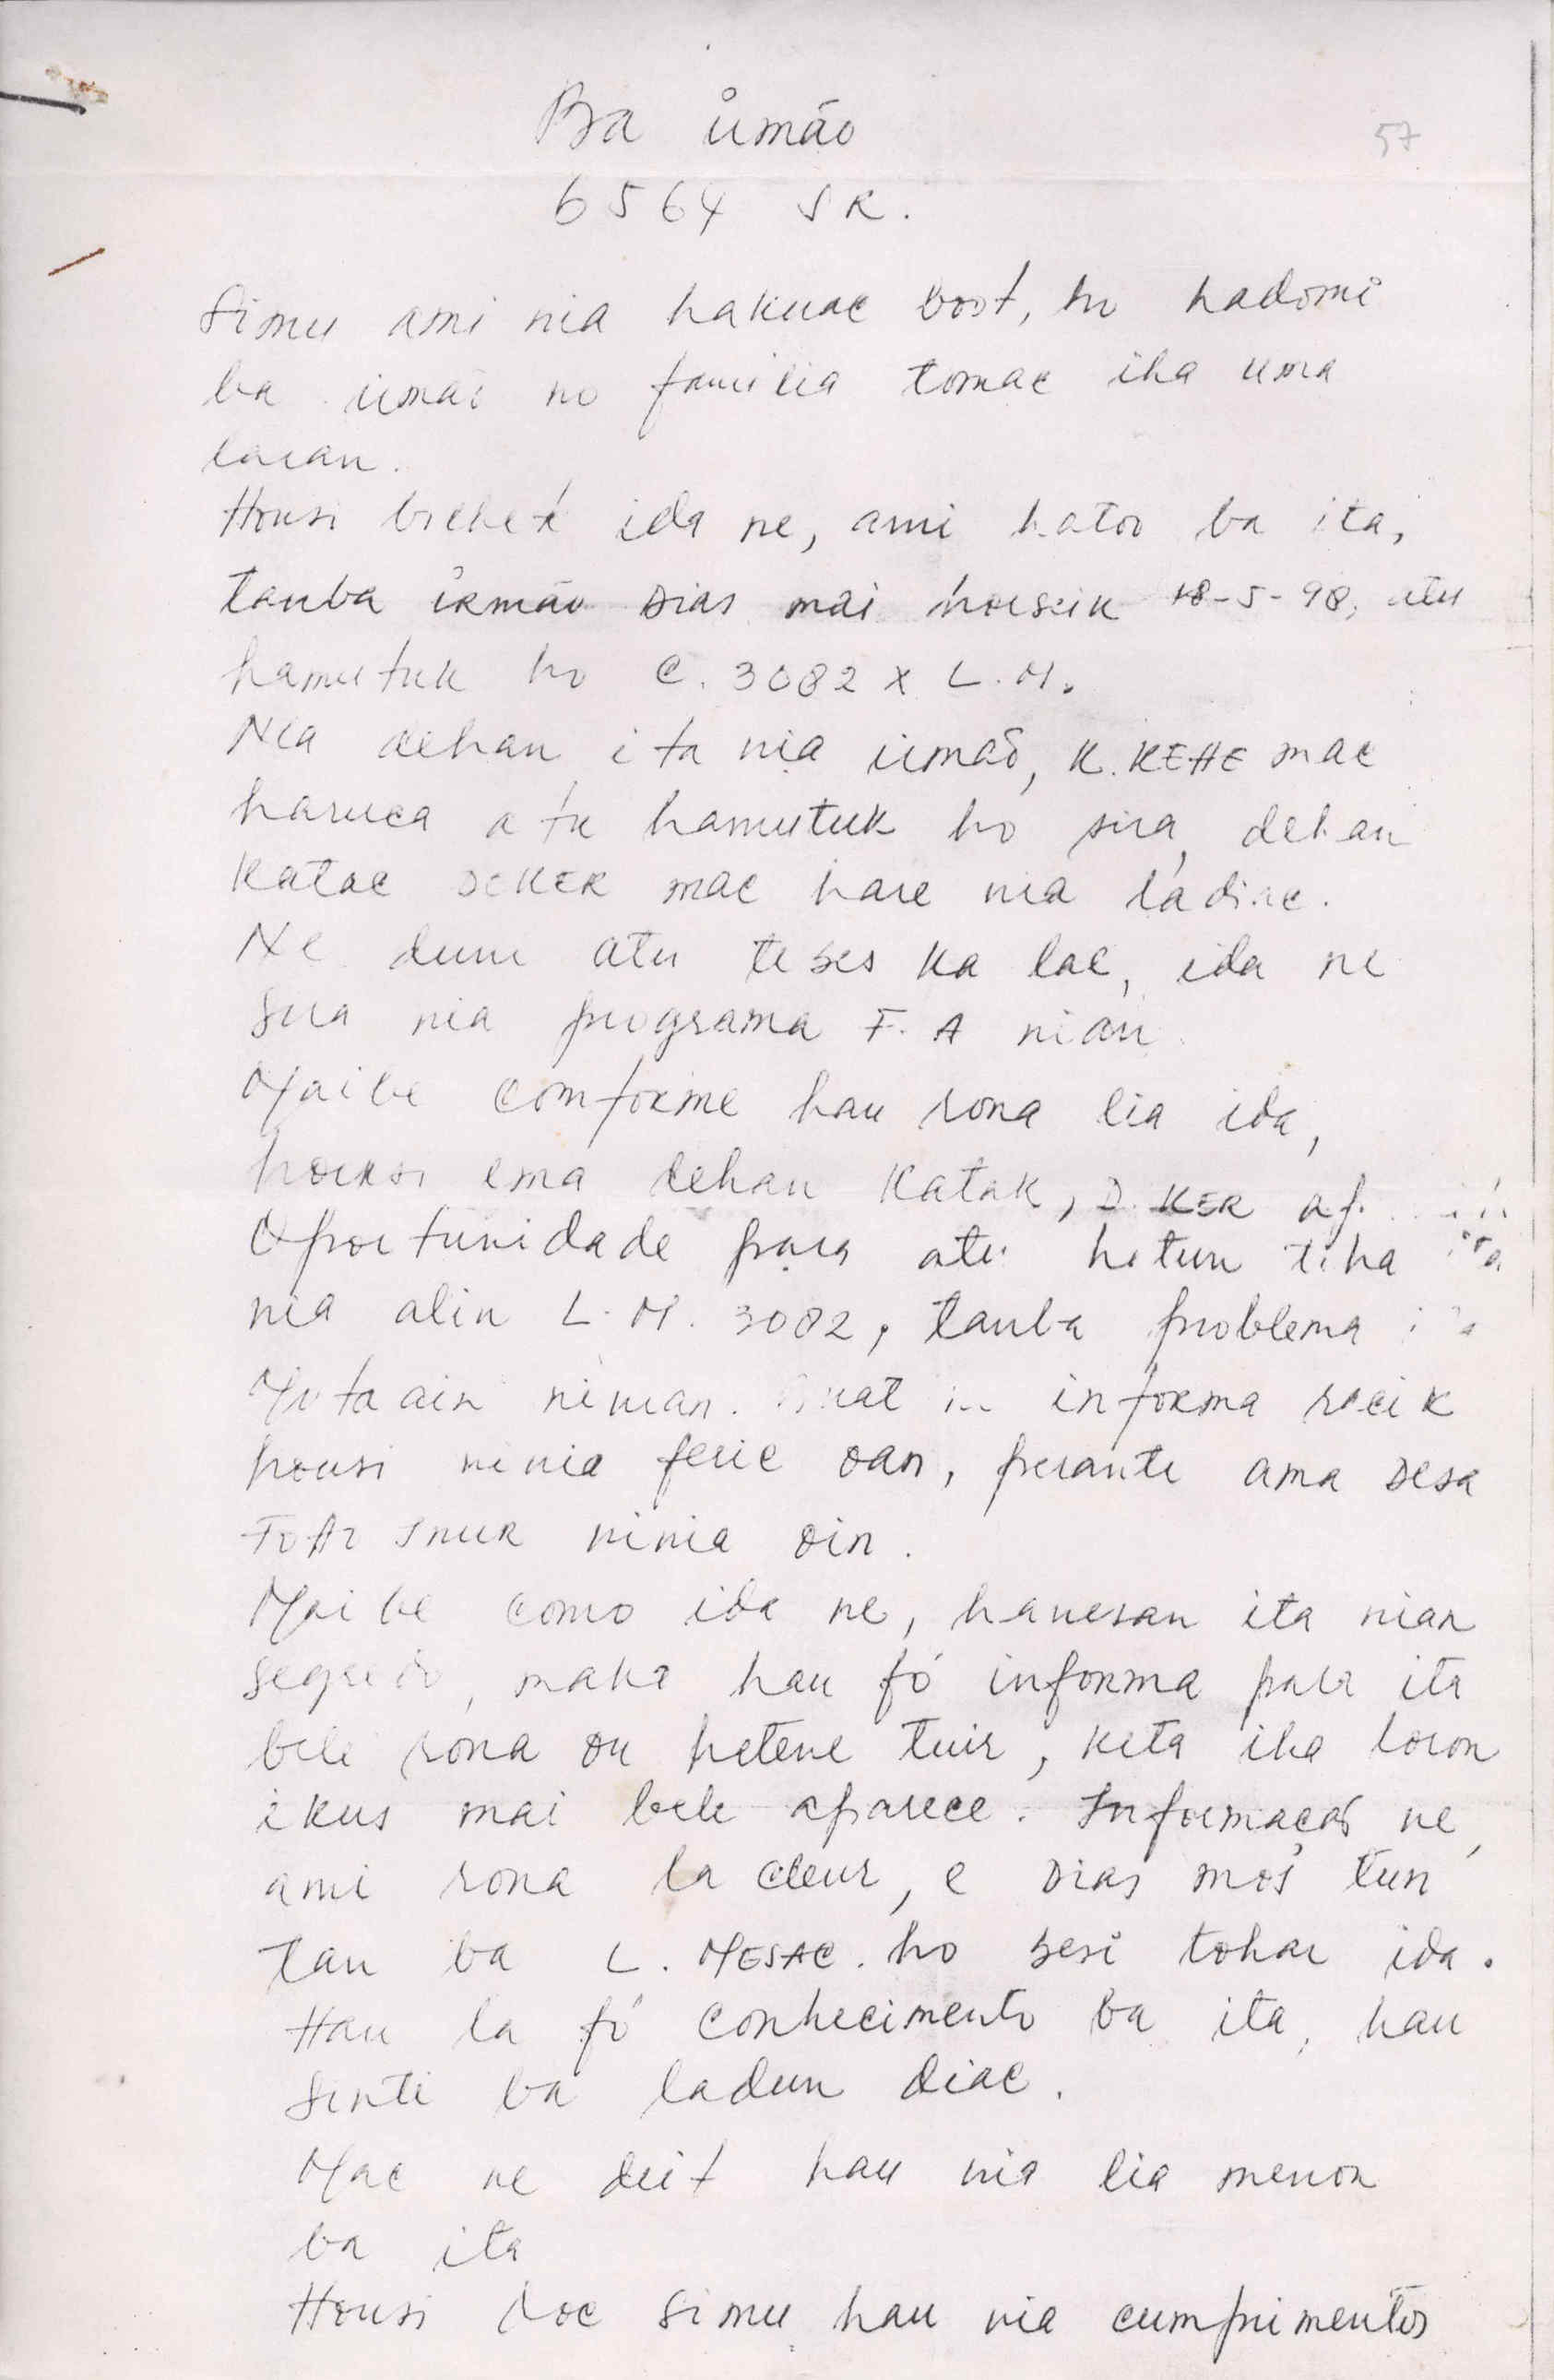 Ba irmão
57
6564 SR.
Simu ami nia hakuac boot, ho hadomi
ba irmão no familia tomac iha uma
laran.
Housi bilhete ida ne, ami hatoo ba ita,
tauba irmão Dias mai horseik 18-5-98, atu
hamutuk ho C. 3082 x L.M.
Nia dehan ita nia irmão, K. KEHE mac
haruca atu hamutuk ho sira, dehan
Katac DEKER mac hare nia ladiac.
Ne duni atu teбes ka lae, ida ne
sira nia programa F. A nian
Maibe comforme hau rona lia ida,
housi ema dehan Katak, D. KER
Oportunidade para atu hetun tiha ita
nia alin L.M. 3082, tauba problema
Motaain ninian. informa racik
housi ninia feric oan, perante ama Desa
ninia oin.
Maibe como ida ne, hanesan ita nian
segredo, maka hau fó informa para ita
bele rona ou hetene tuir, keta iha loron
ikus mai bele aparece. Informação ne,
ami rona la cleur, e Dias mos tun
tan ba L. MESAC. ho besi tohar ida.
Hau la fó conhecimento ba ita, hau
senti ba ladun diac.
Mac ne deit hau nia lia menon
ba ita
Housi doc simu hau nia cumprimentos